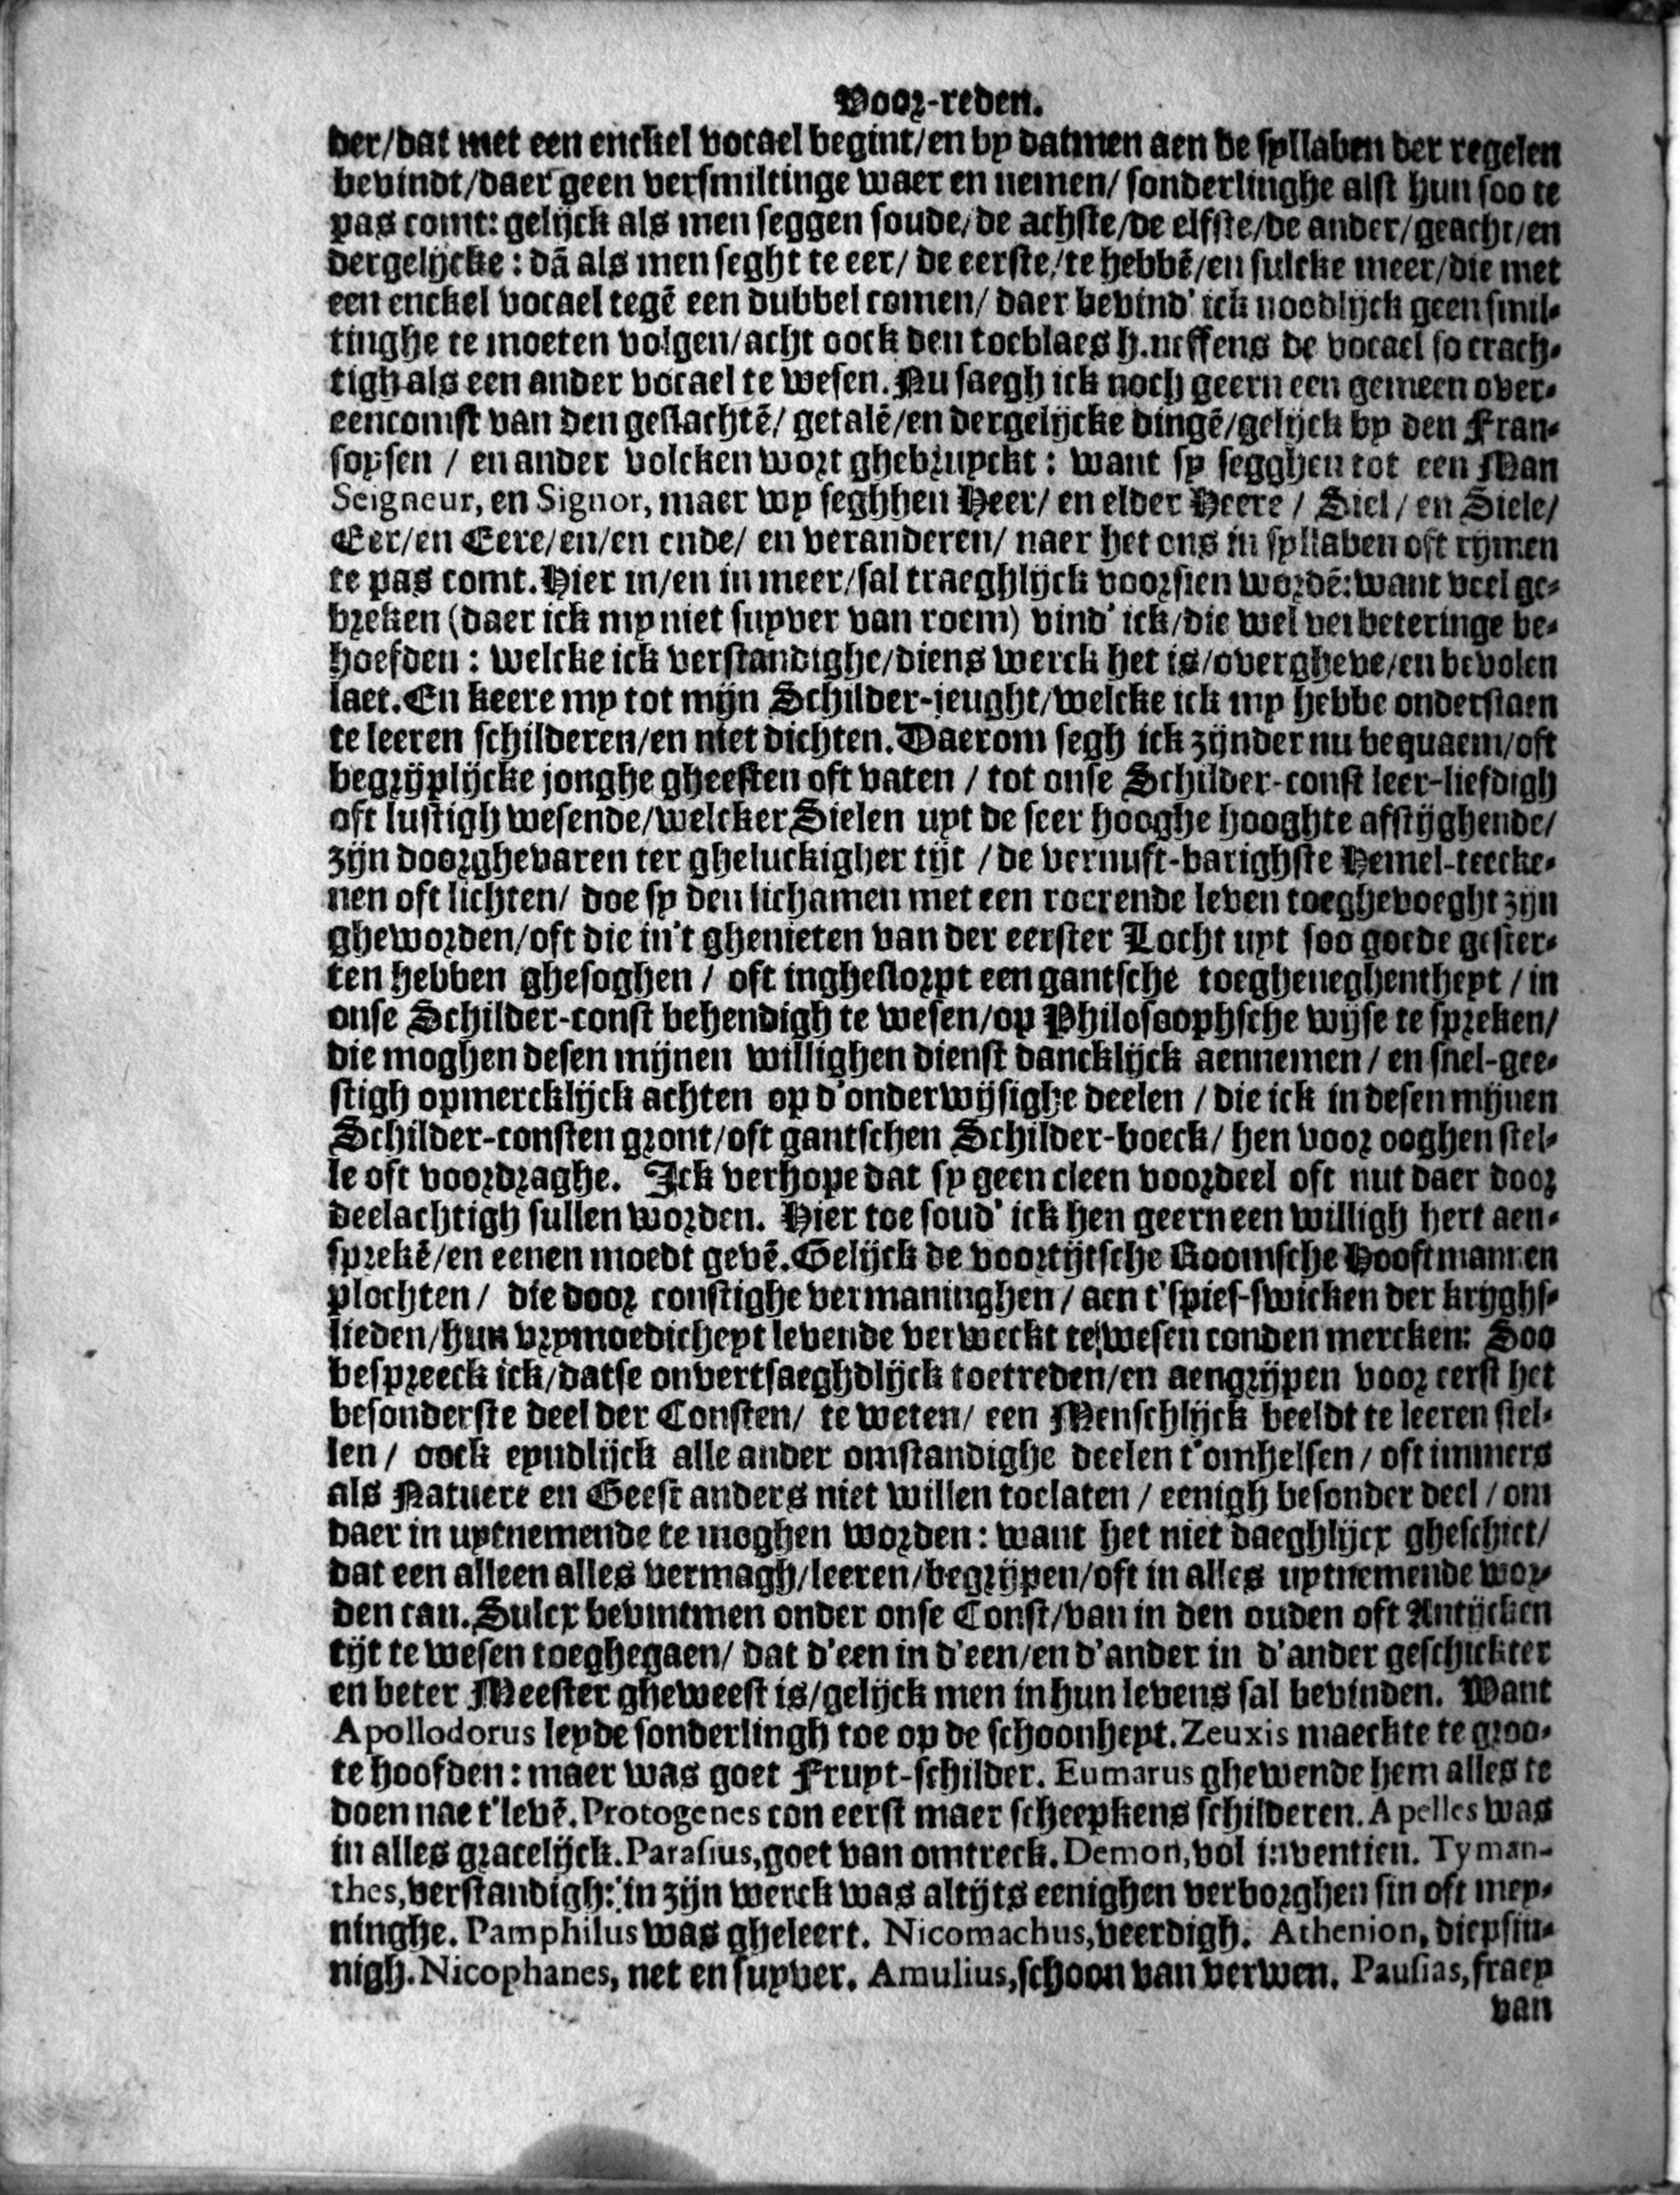 Voor-reden.
der/dat met een enckel vocael begint/en by datmen aen de syllaben der regelen
bevindt/daer geen versmiltinge waer en nemen/ sonderlinghe alst hun soo te
pas comt: gelijck als men seggen soude/de achste/de elfste/de ander/geacht/en
dergelijcke: dā als men seght te eer/ de eerste/te hebbē/en sulcke meer/die met
een enckel vocael tegē een dubbel comen/ daer bevind' ick noodlijck geen smil-
tinghe te moeten volgen/acht oock den toeblaes h.neffens de vocael so crach-
tigh als een ander vocael te wesen. Nu saegh ick noch geern een gemeen over-
eencomst van den geslachtē/ getalē/en dergelijcke dingē/gelijck by den Fran-
soysen / en ander volcken wort ghebruyckt: want sy segghen tot een Man
Seigneur, en Signor, maer wy seghhen Heer/ en elder Heere / Siel/ en Siele/
Eer/en Eere/en/en ende/ en veranderen/ naer het ons in syllaben oft rijmen
te pas comt. Hier in/en in meer/sal traeghlijck voorsien wordē: want veel ge-
breken (daer ick my niet suyver van roem) vind' ick/die wel verbeteringe be-
hoefden: welcke ick verstandighe/diens werck het is/overgheve/en bevolen
laet. En keere my tot mijn Schilder-jeught/welcke ick my hebbe onderstaen
te leeren schilderen/en niet dichten. Daerom segh ick zijnder nu bequaem/oft
begrijplijcke jonghe gheesten oft vaten / tot onse Schilder-const leer-liefdigh
oft lustigh wesende/welcker Sielen uyt de seer hooghe hooghte afstijghende/
zijn doorghevaren ter gheluckigher tijt /de vernuft-barighste Hemel-teecke-
nen oft lichten/ doe sy den lichamen met een roerende leven toeghevoeght zijn
gheworden/oft die in't ghenieten van der eerster Locht uyt soo goede gester-
ten hebben ghesoghen / oft inghestorpt een gantsche toegheneghentheyt / in
onse Schilder-const behendigh te wesen/op Philosoophsche wijse te spreken/
die moghen desen mijnen willighen dienst dancklijck aennemen/ en snel-gee-
stigh opmercklijck achten op d'onderwijsighe deelen /die ick in desen mijnen
Schilder-consten gront/oft gantschen Schilder-boeck/ hen voor ooghen stel-
le oft voordraghe. Ick verhope dat sy geen cleen voordeel oft nut daer door
deelachtigh sullen worden. Hier toe soud' ick hen geern een willigh hert aen-
sprekē/en eenen moedt gevē. Gelijck de voortijtsche Roomsche Hooftmannen
plochten/ die door constighe vermaninghen/ aen t'spies-swicken der krijghs-
lieden/hun vrymoedicheyt levende verweckt te wesen conden mercken: Soo
bespreeck ick/datse onvertsaeghdlijck toetreden/en aengrijpen voor eerst het
besonderste deel der Consten/ te weten/ een Menschlijck beeldt te leeren stel-
len/ oock eyndlijck alle ander omstandighe deelen t'omhelsen/ oft immers
als Natuere en Geest anders niet willen toelaten / eenigh besonder deel / om
daer in uytnemende te moghen worden: want het niet daeghlijcx gheschiet/
dat een alleen alles vermagh/leeren/begrijpen/oft in alles uytnemende wor-
den can. Sulcx bevintmen onder onse Const/van in den ouden oft Antijcken
tijt te wesen toeghegaen/ dat d'een in d'een/en d'ander in d'ander geschickter
en beter Meester gheweest is/gelijck men in hun levens sal bevinden. Want
Apollodorus leyde sonderlingh toe op de schoonheyt. Zeuxis maeckte te groo-
te hoofden: maer was goet Fruyt-schilder. Eumarus ghewende hem alles te
doen nae t'levē. Protogenes con eerst maer scheepkens schilderen. Apelles was
in alles gracelijck. Parasius, goet van omtreck. Demon, vol inventien. Tyman-
thes, verstandigh: in zijn werck was altijts eenighen verborghen sin oft mey-
ninghe. Pamphilus was gheleert. Nicomachus, veerdigh. Athenion, diepsin-
nigh. Nicophanes, net en suyver. Amulius, schoon van verwen. Pausias, fraey
van